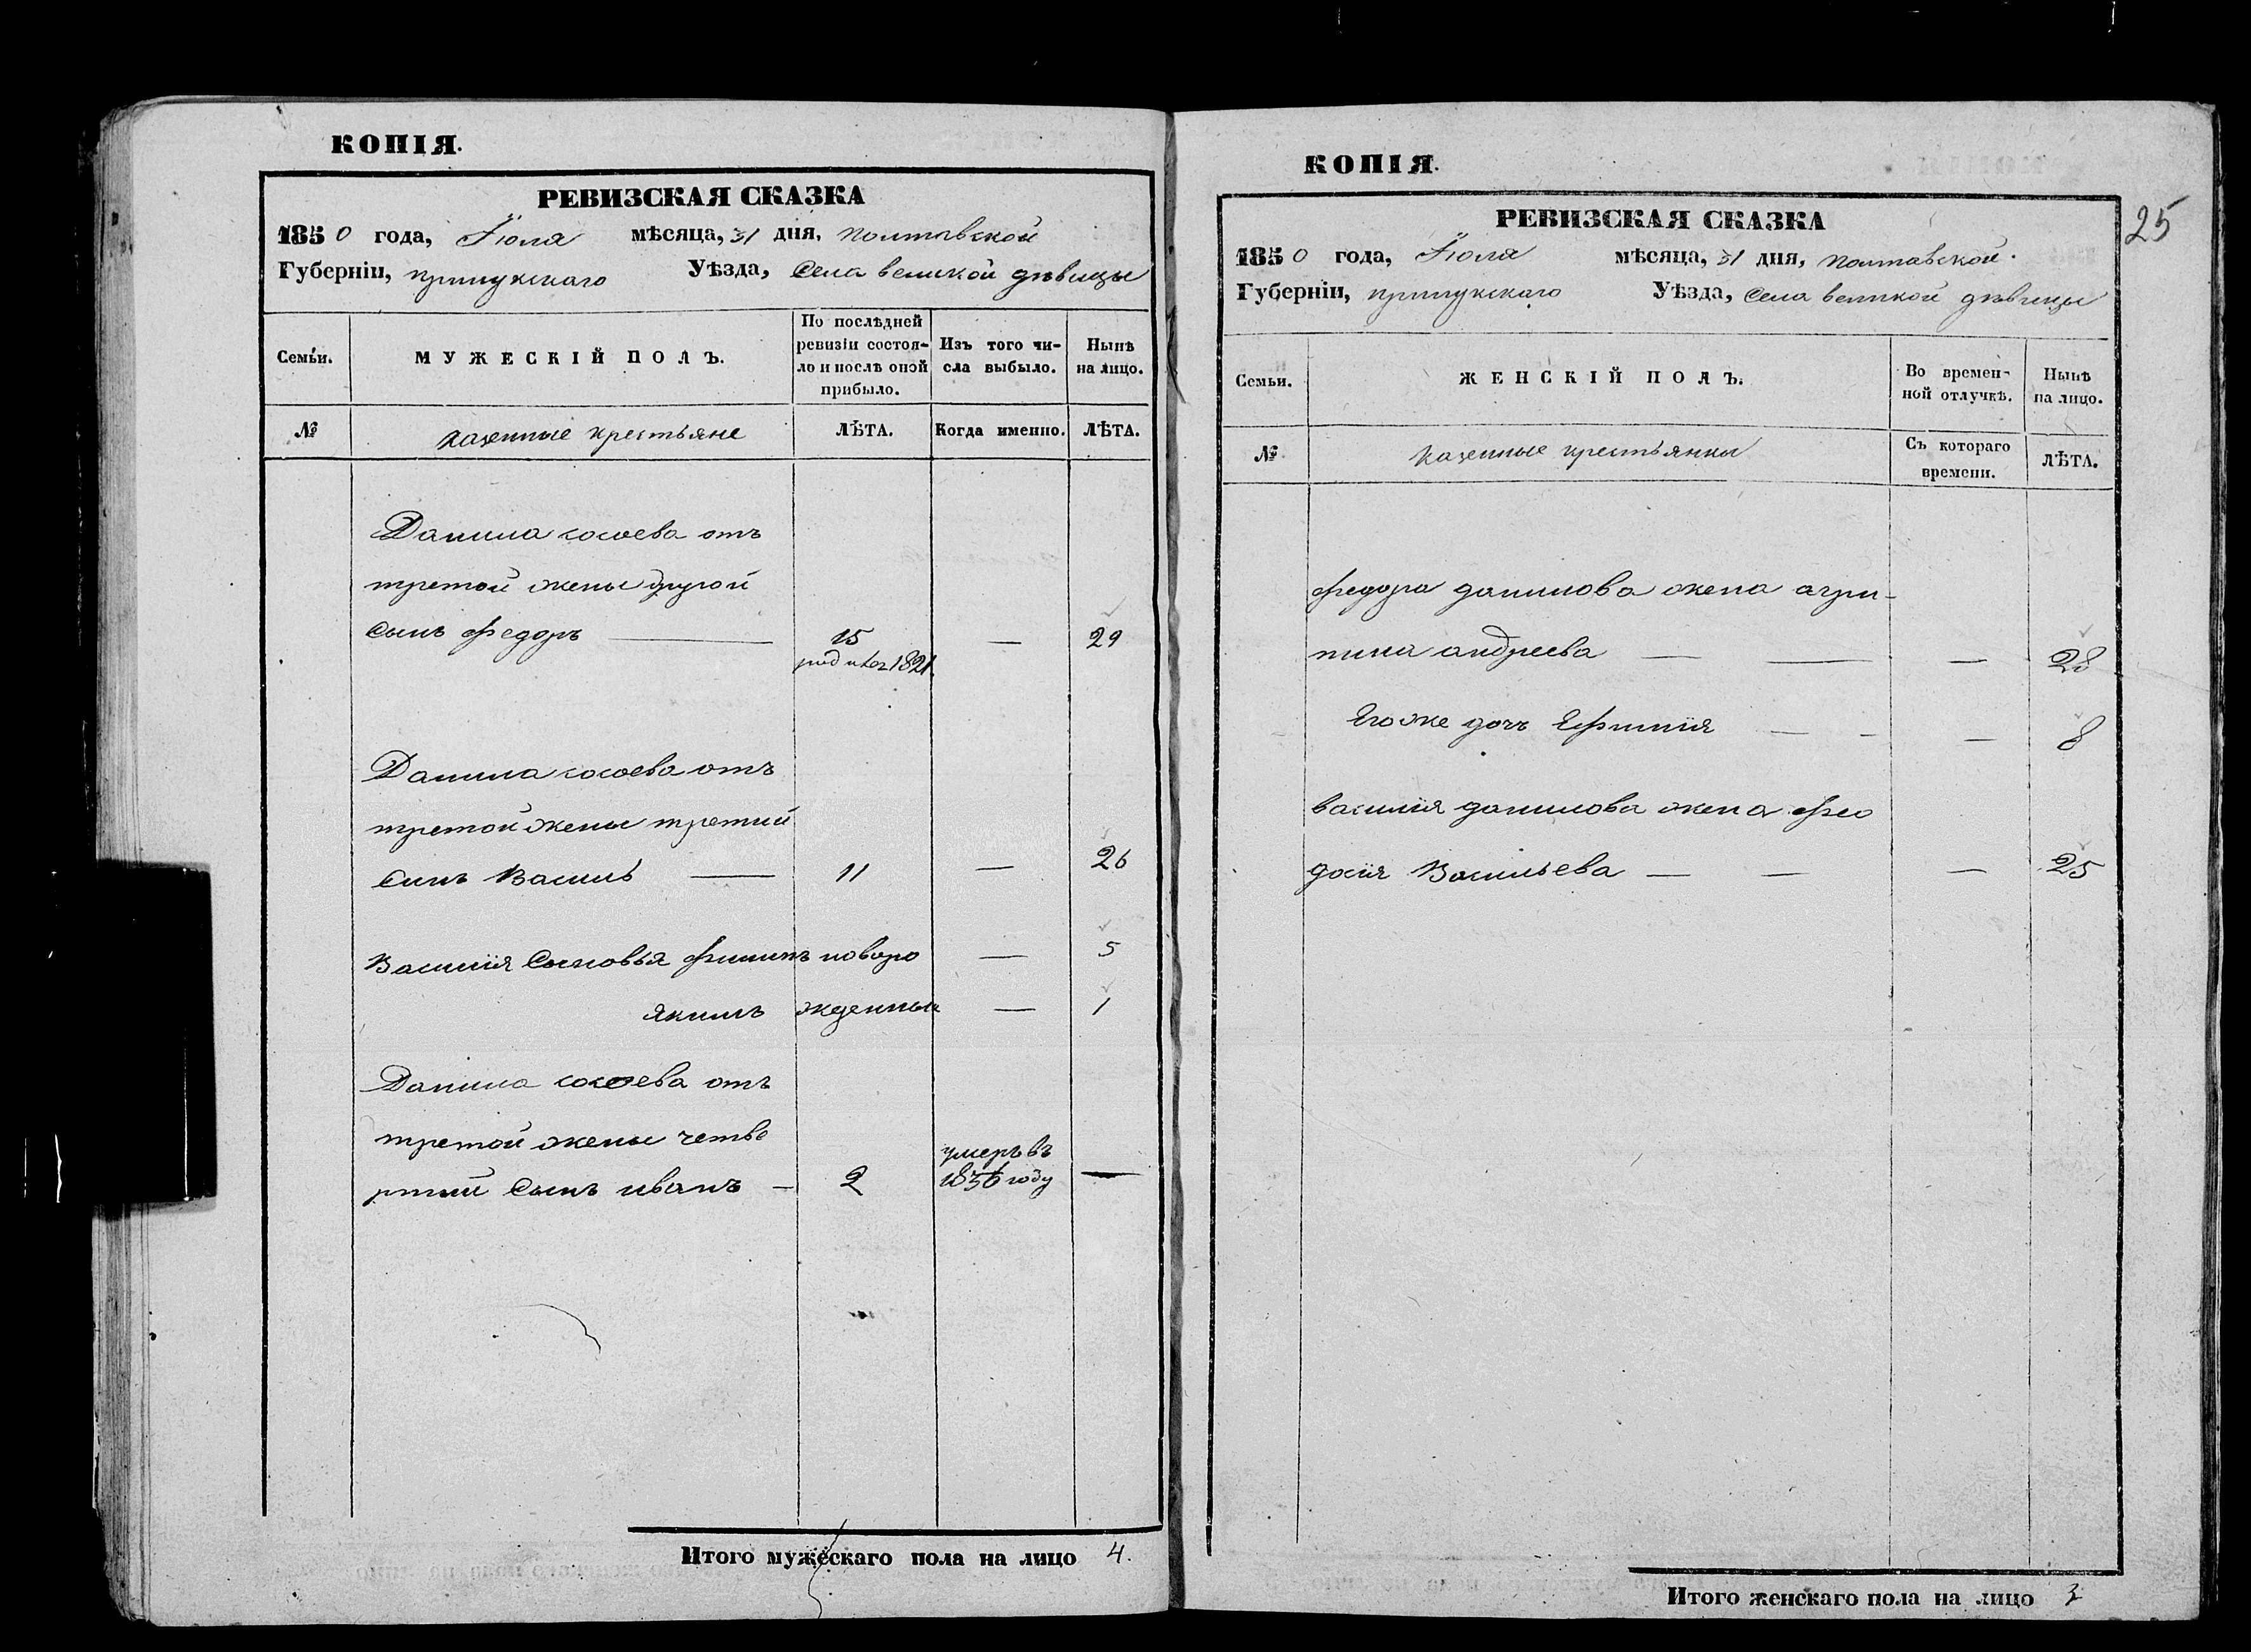 КОПІЯ.
РЕВИЗСКАЯ СКАЗКА
1850 года, Іюля мѣсяца, 31 дня, полтавской
Губерніи, прилукскаго Уѣзда, Села великой дѣвицы
Семьи.
МУЖЕСКІЙ ПОЛЪ.
По послѣдней
ревизіи состоя-
ло и послѣ оной
прибыло.
Изъ того чи-
сла выбыло.
Нынѣ
на лицо.
№
казенные крестьяне
ЛѢТА.
Когда именно.
ЛѢТА.
Данила отъ
третой жены другой
сынъ федоръ — 15 — 29
1821
Данила отъ
третой жены третий
Синъ Василь — 11 — 26
Василия Сыновья филипъ новоро — 5
якимъ жденные — 1
Данила отъ
третой жены четве
ртий Сынъ иванъ — 2 умеръ въ 1836 году —
Итого мужескаго пола на лицо 4.
КОПІЯ.
25
РЕВИЗСКАЯ СКАЗКА
1850 года, Іюля мѣсяца, 31 дня, полтавской
Губерніи, прилукскаго Уѣзда, Села великой дѣвицы
Семьи.
ЖЕНСКІЙ ПОЛЪ.
Во времен-
ной отлучкѣ.
Нынѣ
на лицо.
№
казенные крестьянки
Съ котораго
времени.
ЛѢТА.
федора данилова жена агри-
пина андреева — — — 28
Его же дочь Ефимия — - — 8
василия данилова жена фео
досия Васильева — — — 25
Итого женскаго пола на лицо 3